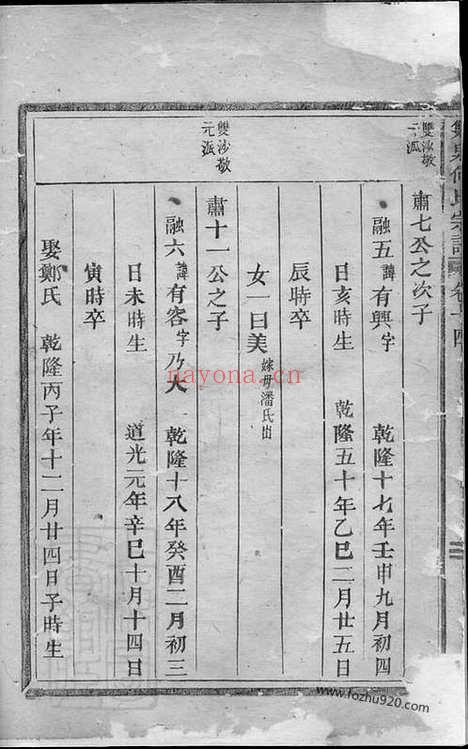 雙沙敬
元派
肅七公之次子
融五諱有興字 乾隆十七年壬申九月初四
日亥時生 乾隆五十年乙巳二月廿五日
辰時卒
女一曰美嫁毋潘氏出
雙沙敬
元派
肅十一公之子
融六諱有容字乃大 乾隆十八年癸酉二月初三
日未時生 道光元年辛巳十月十四日
寅時卒
娶鄭氏 乾隆丙子年十二月廿四日子時生
nayona.cn
www.fozhu920.com